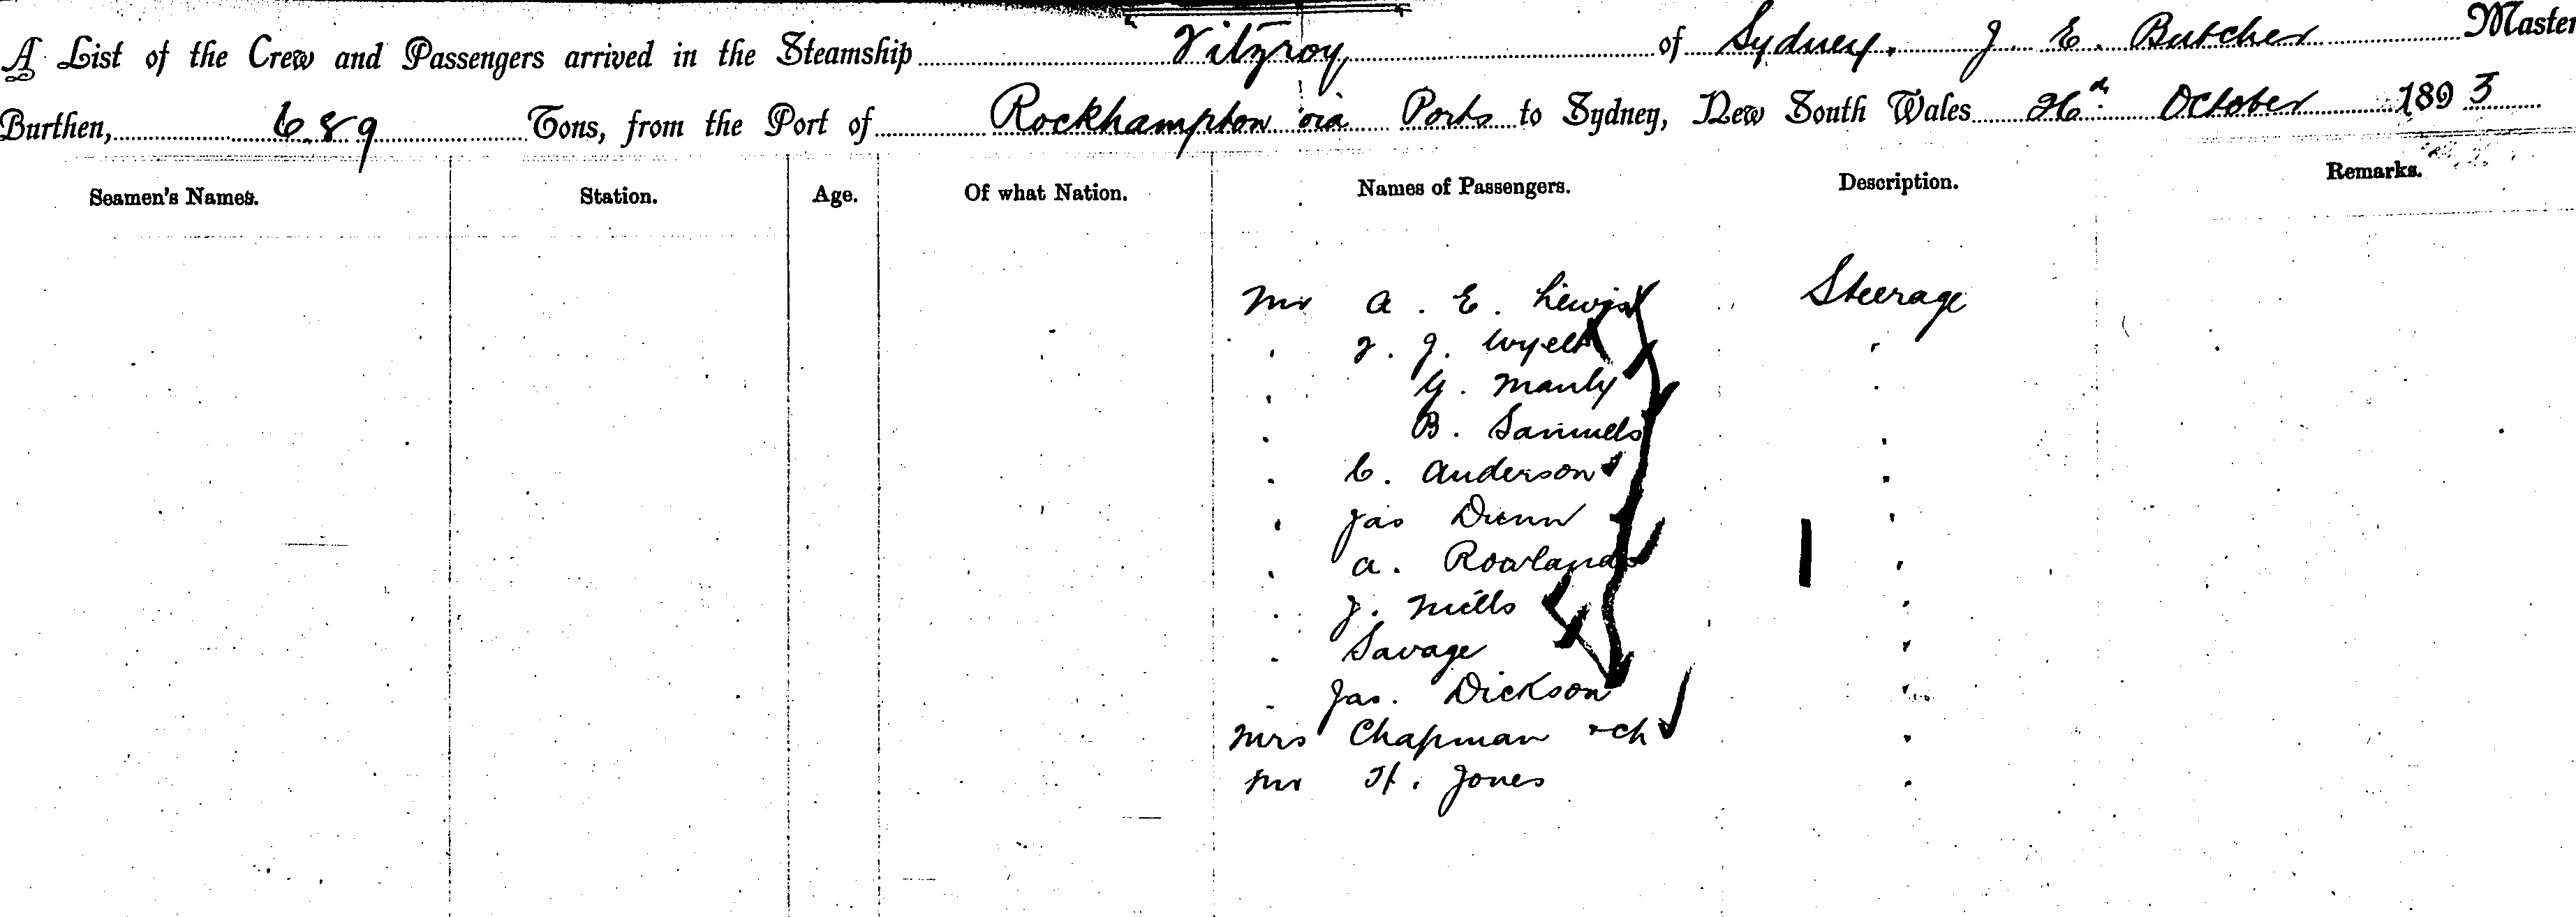 A List of the Crew and Passengers arrived in the Steamship Fitzroy of Sydney. J. E. Butcher Master
Burthen, 689 Tons, from the Port of Rockhampton via Ports to Sydney, New South Wales 26th October 1893
Seamen's Names. Station. Age. Of what Nation. Names of Passengers. Description. Remarks.
Mr A. E. Lewis Steerage
" J. Wyett "
" G. Manly "
" B. Samuels "
" C. Anderson "
" Jas Dunn "
" A. Rowlands "
" J. Mills "
" Savage "
" Jas. Dickson "
Mrs Chapman + ch "
Mr H. Jones "